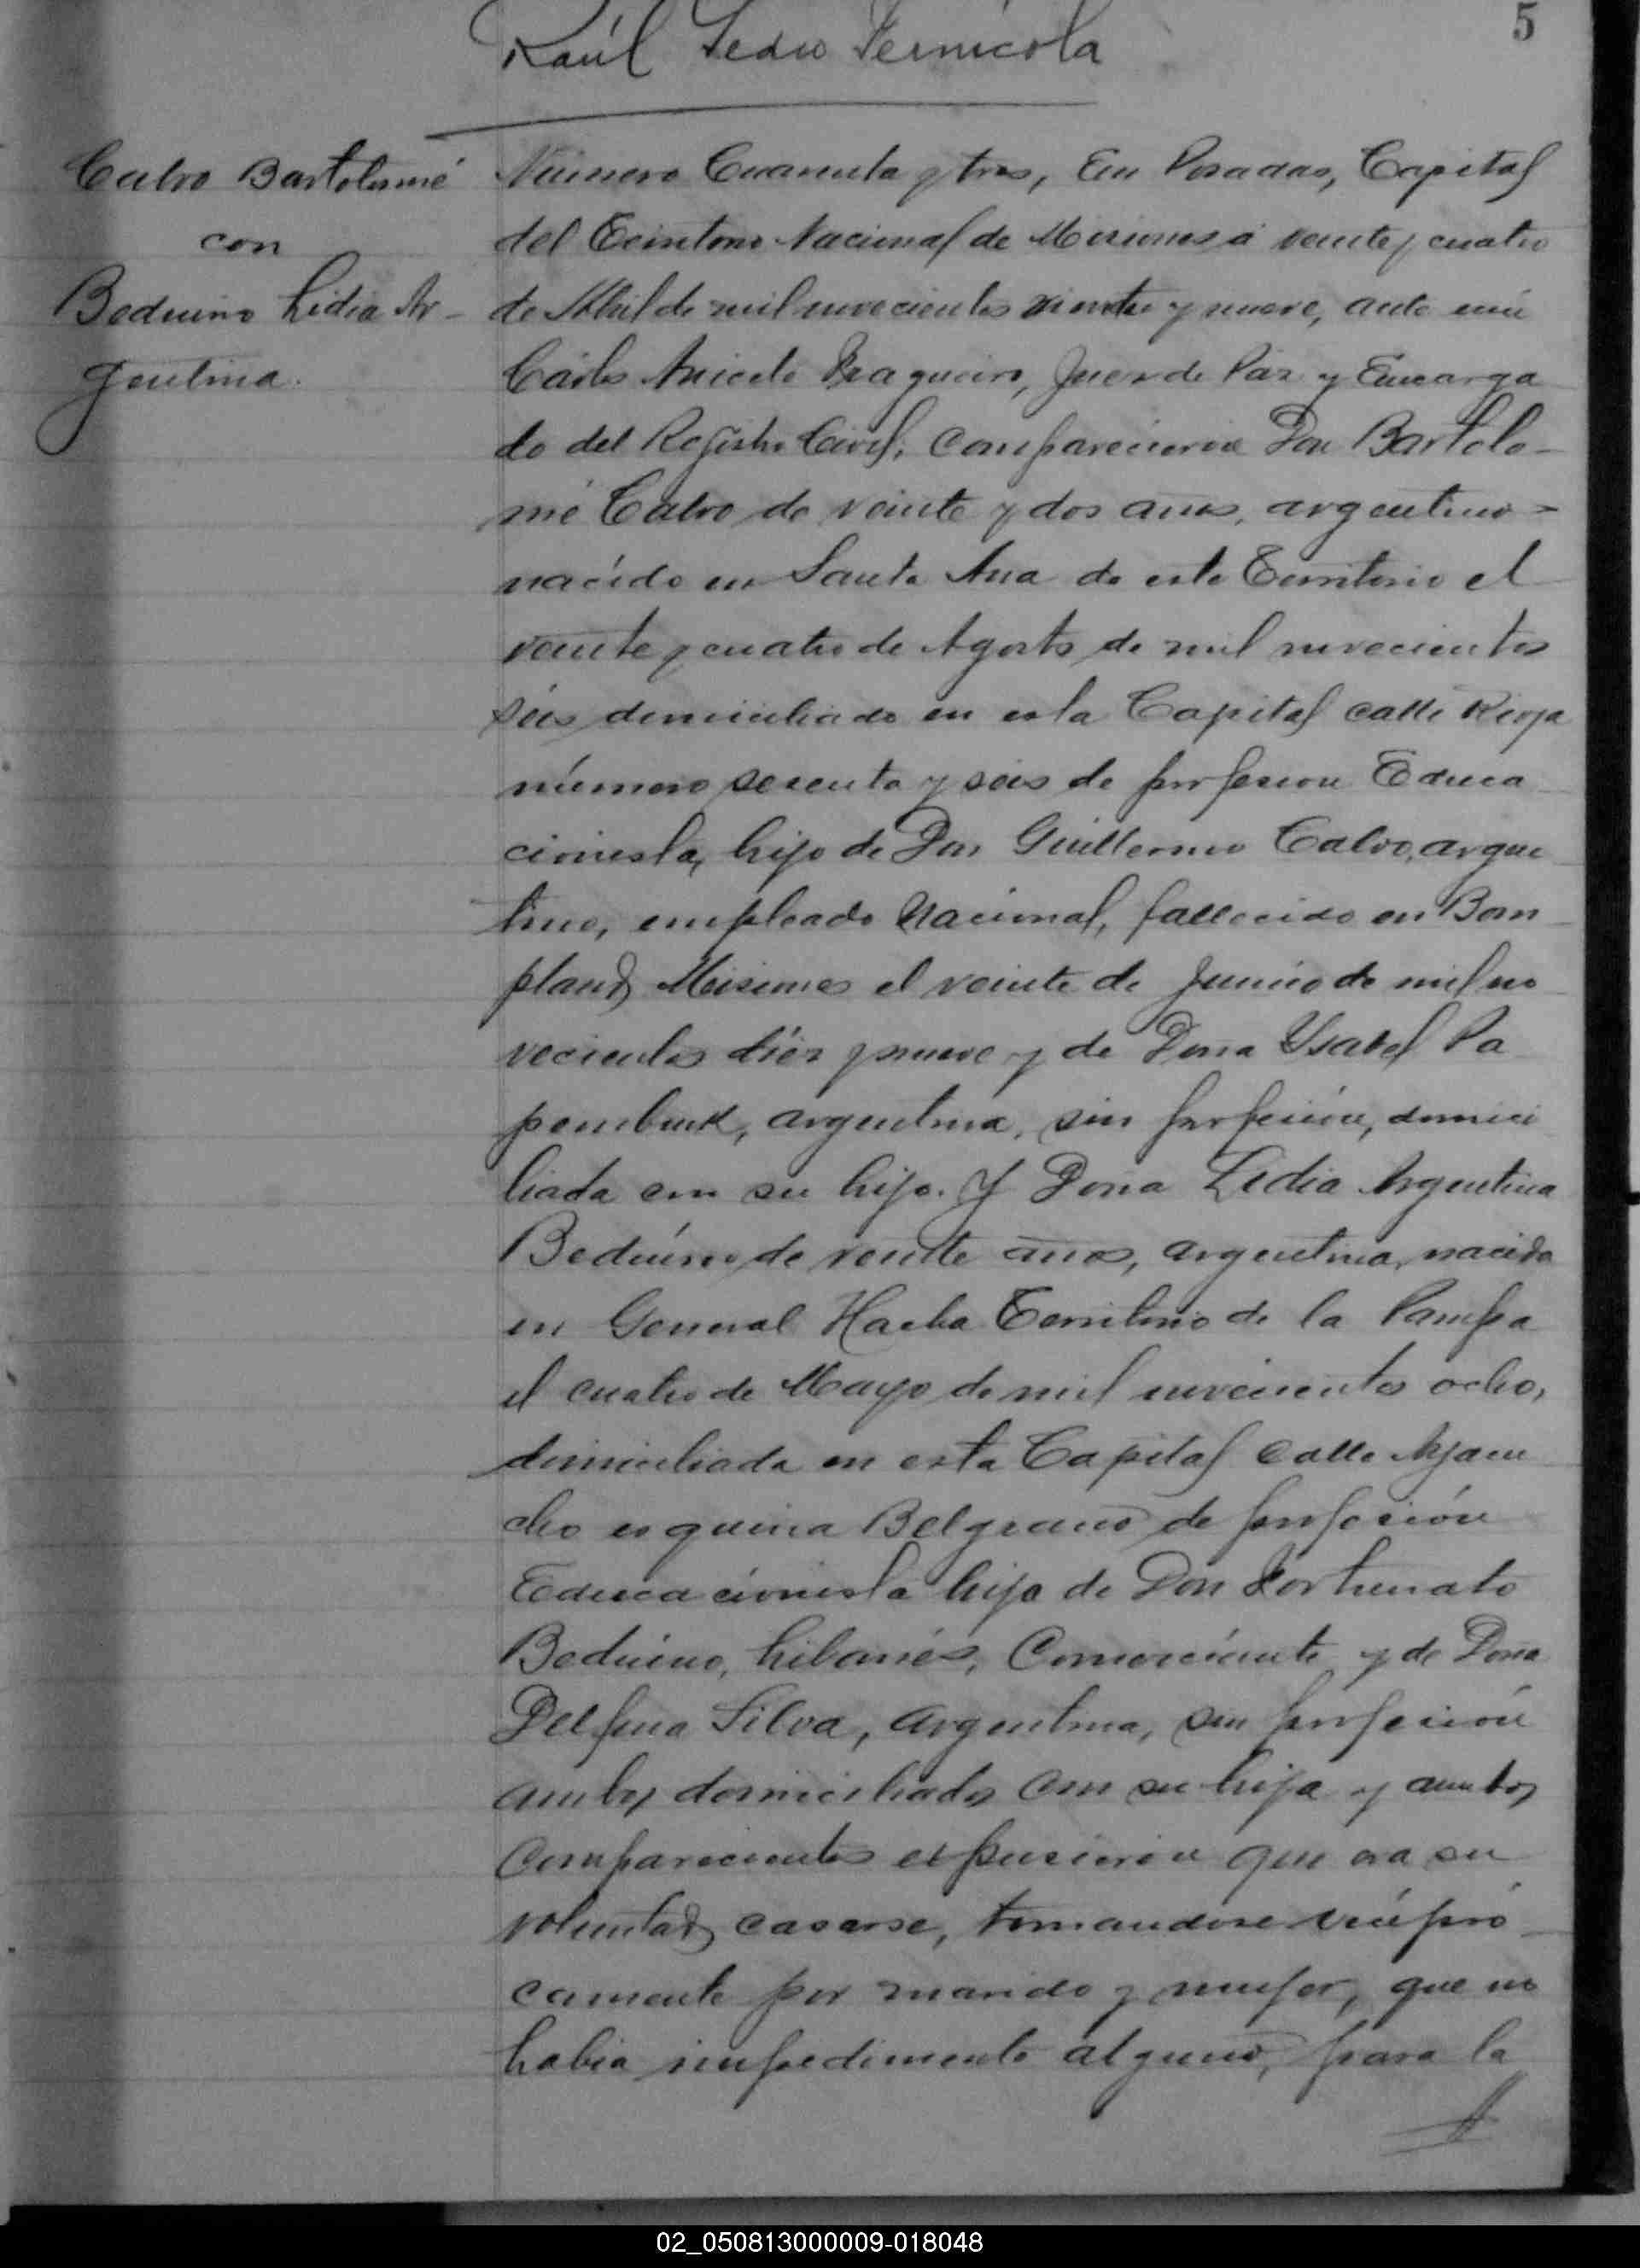 5
Raúl Pedro Pernícola
Calvo Bartolomé
con
Beduino Lidia Ar-
gentina.
Número Cuarenta y tres, En Posadas, Capital
del Territorio Nacional de Misiones á veinte y cuatro
de Abril de mil novecientos veinte y nueve, ante mi
Cárlos Aniceto Fragueiro, Juez de Paz y Encarga
do del Registro Civil, comparecieron Don Bartolo-
mé Calvo de veinte y dos años, argentino-
nacido en Santa Ana de este Territorio el
veinte y cuatro de Agosto de mil novecientos
séis domiciliado en esta Capital calle Rioja
número sesenta y seis de profesion Educa
cionista, hijo de Don Guillermo Calvo, argen
tino, empleado Nacional, fallecido en Bon
pland, Misiones el veinte de Junio de mil no
vecientos diéz y nueve y de Doña Ysabel Pa
pembuck, argentina, sin profesión, domici
liada con su hijo. Y Doña Lidia Argentina
Beduíno de veinte años, argentina, nacida
en General Hacha Territorio de la Pampa
el cuatro de Mayo de mil novecientos ocho,
domiciliada en esta Capital calle Ayacu
cho esquina Belgrano de profesión
Educacionista hija de Don Fortunato
Beduino, libanés, Comerciante y de Doña
Delfina Silva, argentina, sin profesión
ambos domiciliados con su hija y ambos
comparecientes expusieron que era su
voluntad casarse, tomandose recípro
camente por marido y mujer, que no
habia impedimento alguno, para la
02_050813000009-018048